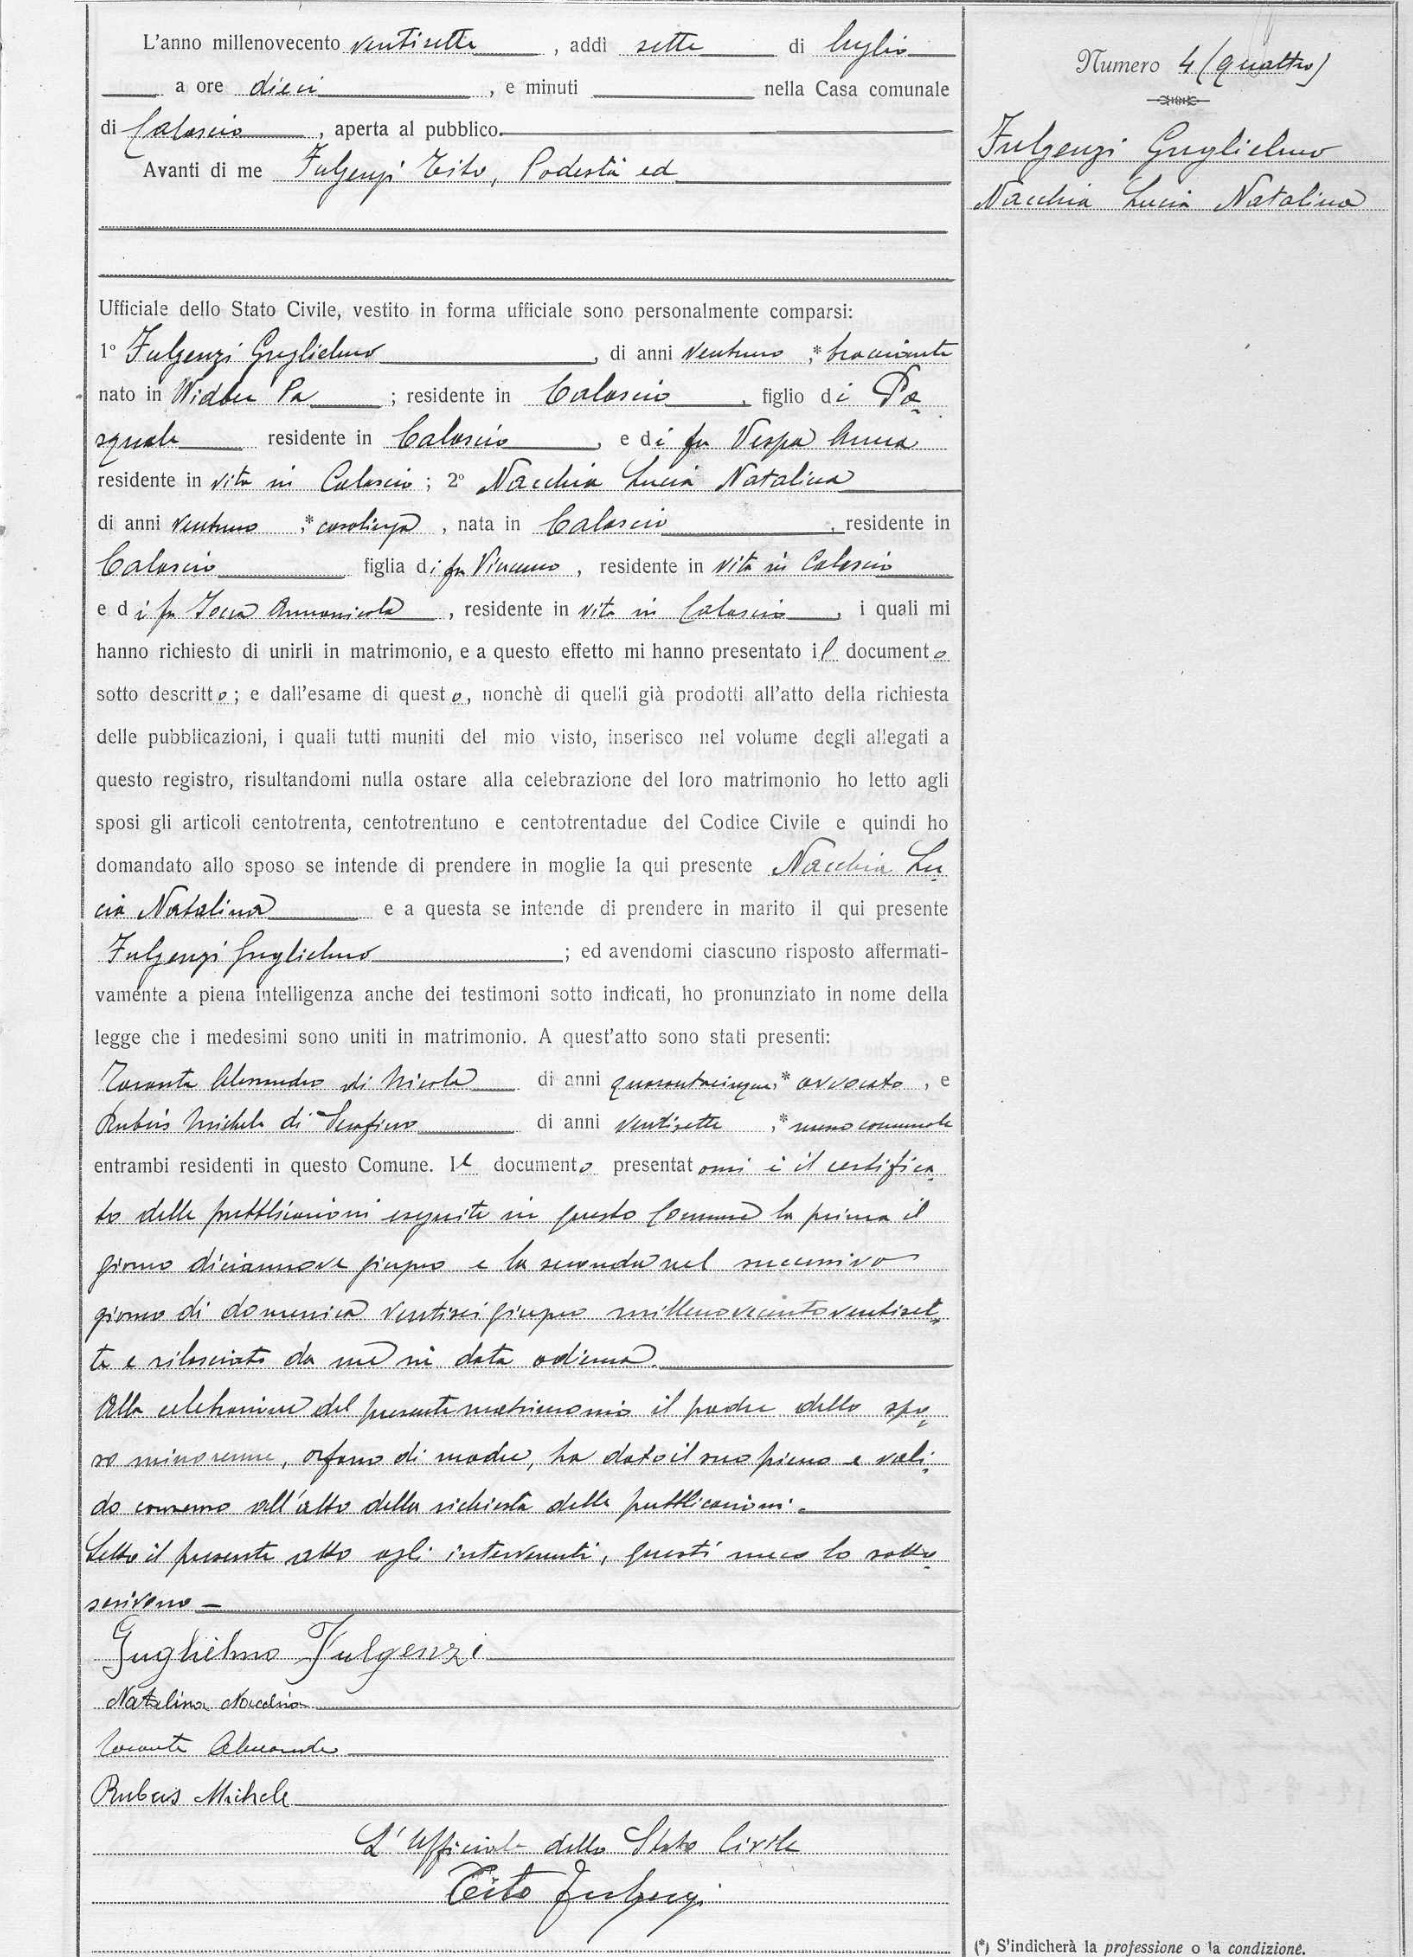 L'anno millenovecento ventisette , addì sette di luglio
a ore dieci , e minuti nella Casa comunale
di Calascio , aperta al pubblico.
Avanti di me Fulgenzi Tito, Podestà ed
Ufficiale dello Stato Civile, vestito in forma ufficiale sono personalmente comparsi:
1º Fulgenzi Guglielmo , di anni ventuno ,* bracciante
nato in Widber Pa ; residente in Calascio , figlio di Pa-
squale residente in Calascio , e di fu Vespa Anna
residente in vita in Calascio ; 2º Nacchia Lucia Natalina
di anni ventuno ,* casalinga , nata in Calascio , residente in
Calascio figlia di fu Vincenzo , residente in vita in Calascio
e di fu Annanicola , residente in vita in Calascio , i quali mi
hanno richiesto di unirli in matrimonio, e a questo effetto mi hanno presentato il documento
sotto descritto ; e dall'esame di questo , nonchè di quelli già prodotti all'atto della richiesta
delle pubblicazioni, i quali tutti muniti del mio visto, inserisco nel volume degli allegati a
questo registro, risultandomi nulla ostare alla celebrazione del loro matrimonio ho letto agli
sposi gli articoli centotrenta, centotrentuno e centotrentadue del Codice Civile e quindi ho
domandato allo sposo se intende di prendere in moglie la qui presente Nacchia Lu-
cia Natalina e a questa se intende di prendere in marito il qui presente
Fulgenzi Guglielmo ; ed avendomi ciascuno risposto affermati-
vamente a piena intelligenza anche dei testimoni sotto indicati, ho pronunziato in nome della
legge che i medesimi sono uniti in matrimonio. A quest'atto sono stati presenti:
Taranta Alessandro di Nicola di anni quarantacinque,* avvocato , e
Rubeis Michele di Serafino di anni ventisette ,* messo comunale
entrambi residenti in questo Comune. Il documento presentatomi è il certifica-
to delle pubblicazioni eseguite in questo Comune la prima il
giorno diciannove giugno e la seconda nel successivo
giorno di domenica ventisei giugno millenovecentoventiset-
te e rilasciato da me in data odierna.
Alla celebrazione del presente matrimonio il padre dello spo-
so minorenne, orfano di madre, ha dato il suo pieno e vali-
do consenso all'atto della richiesta delle pubblicazioni.
Letto il presente atto agli intervenuti, questi meco lo sotto-
scrivono -
Guglielmo Fulgenzi
Natalina Nacchia
Taranta Alessandro
Rubeis Michele
L'Ufficiale dello Stato Civile
Tito Fulgenzi
Numero 4 (quattro)
Fulgenzi Guglielmo
Nacchia Lucia Natalina
(*) S'indicherà la professione o la condizione.